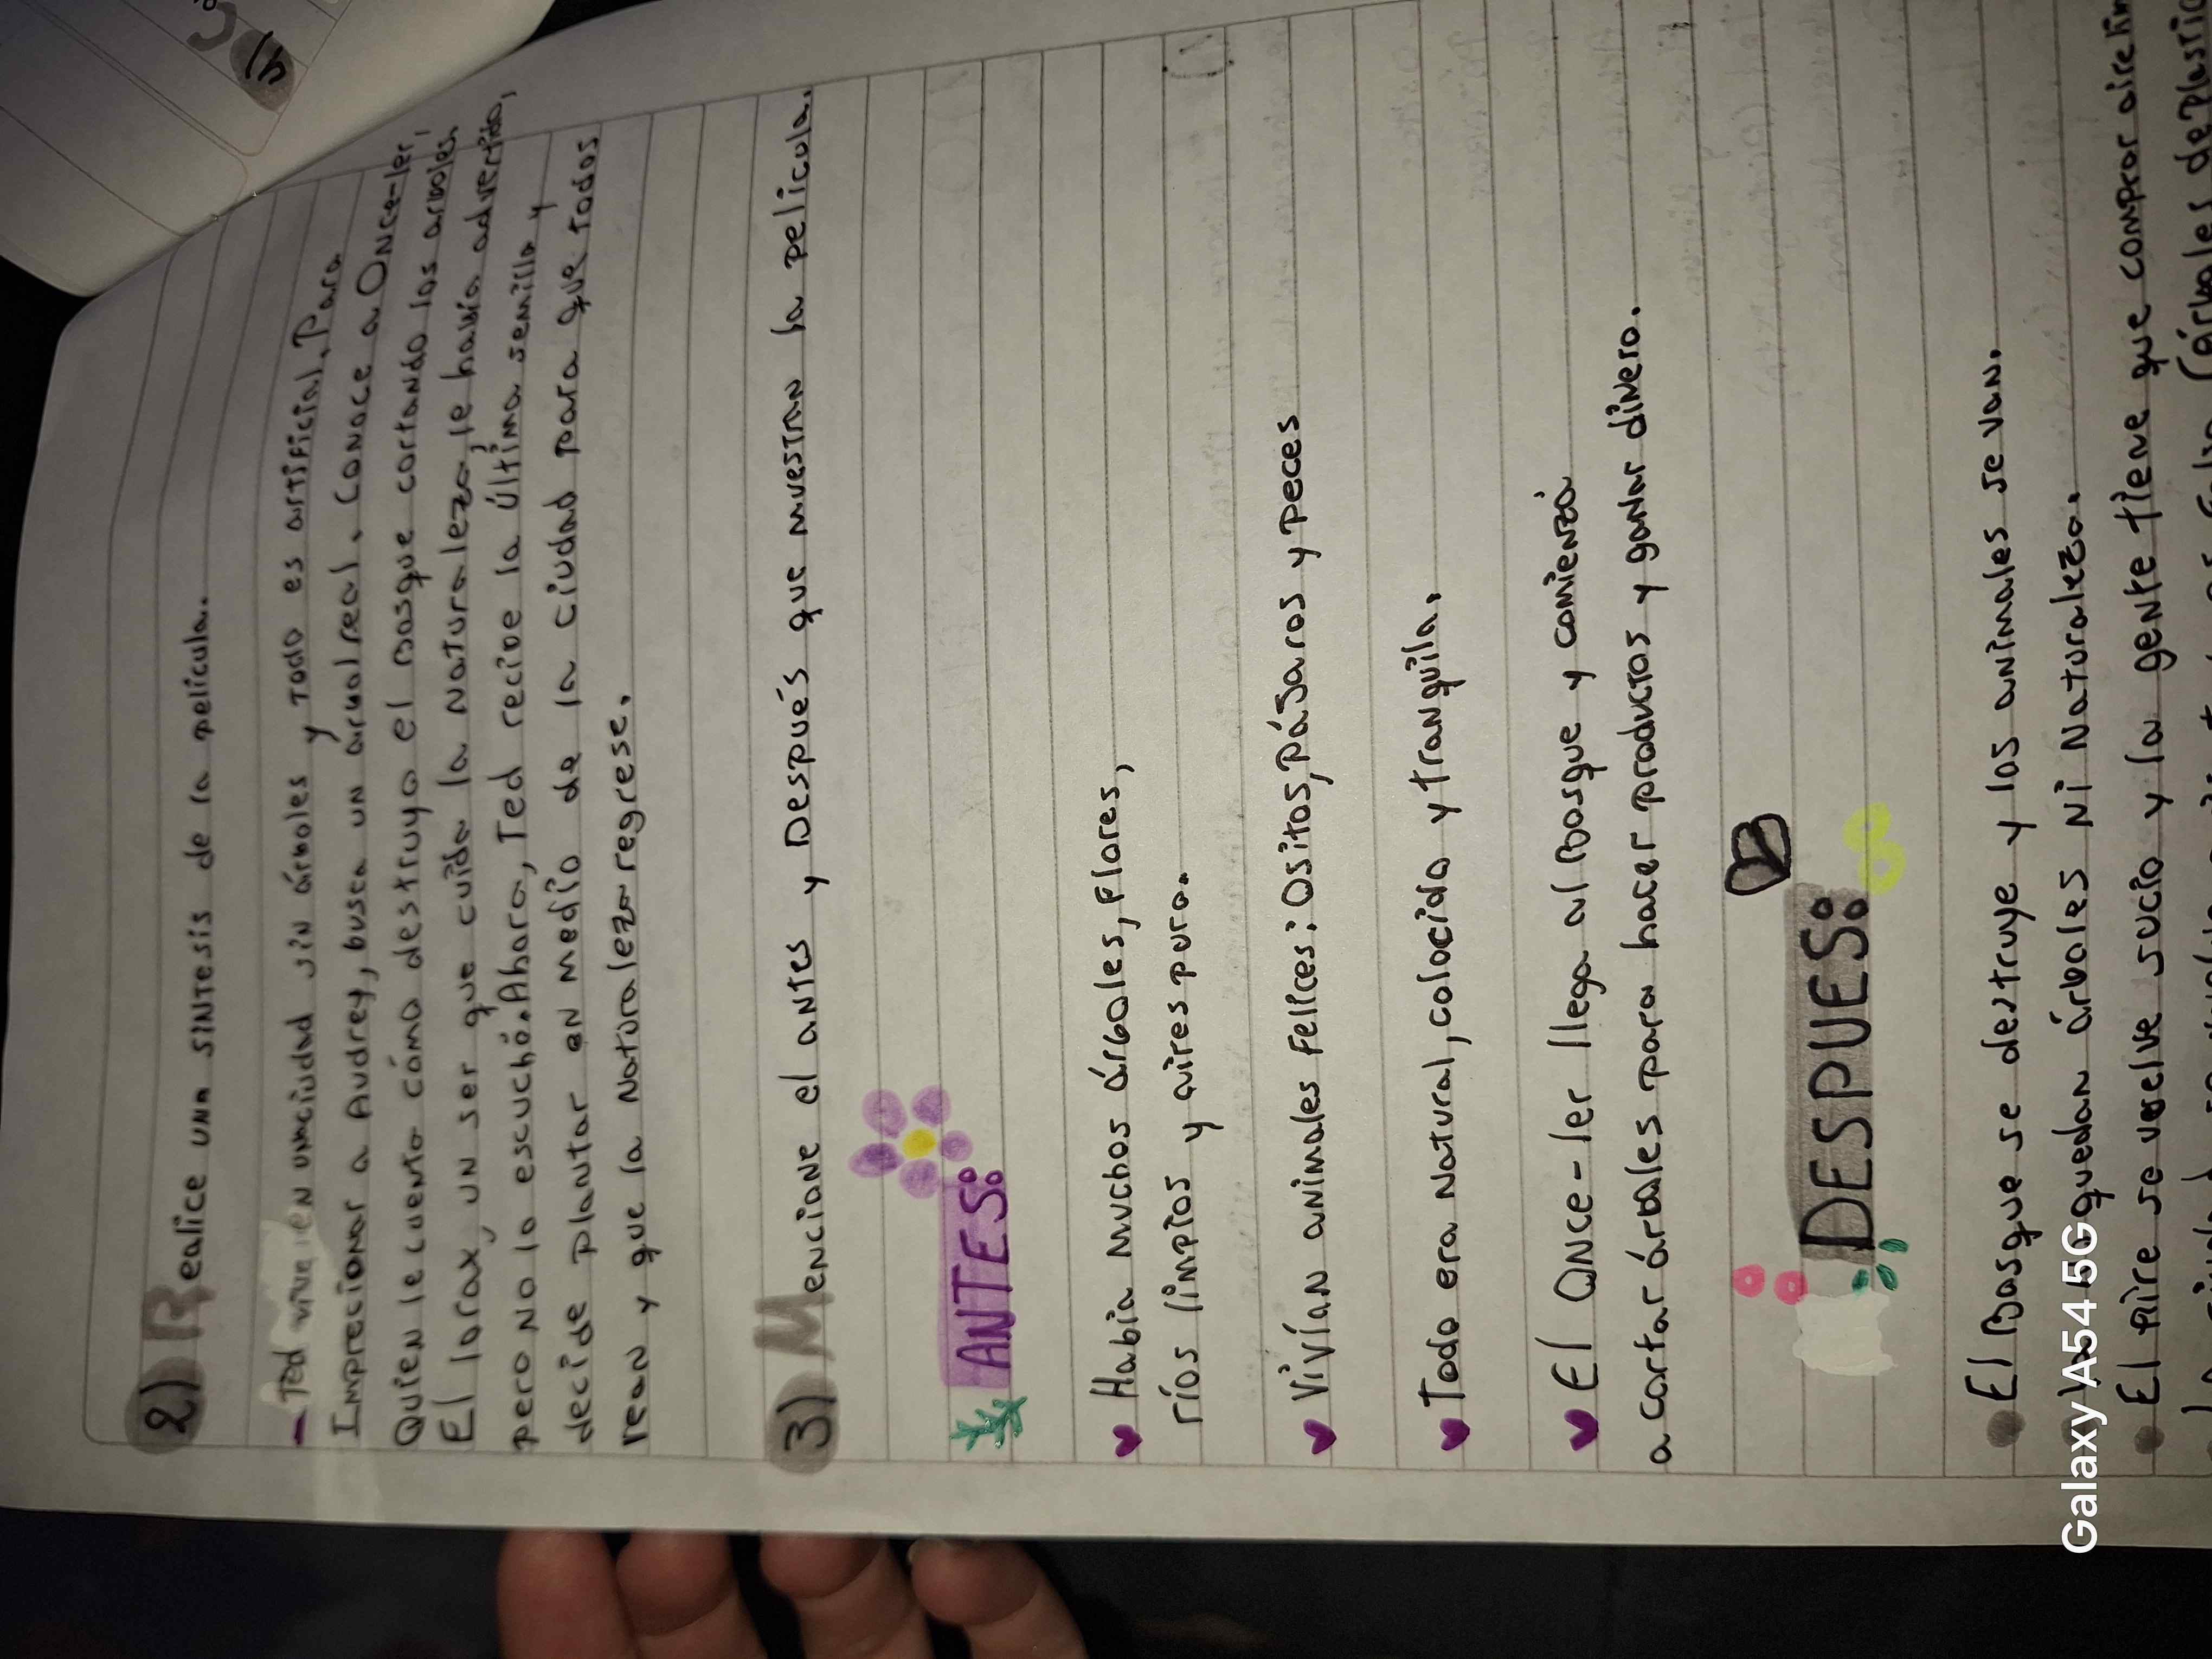 2) Realice una síntesis de la película.
- Ted vive en una ciudad sin árboles y todo es artificial. Para
Imprecionar a Audrey, busca un árbol real. Conoce a Once-ler,
Quien le cuenta cómo destruyo el bosque cortando los arboles
El lorax, un ser que cuida la naturaleza, le había advertido,
pero no lo escuchó. Ahora, Ted recibe la última semilla y
decide plantar en medio de la ciudad para que todos
vean y que la naturaleza regrese.
3) Mencione el antes y Después que muestran la película.
ANTES:
Habia muchos árboles, flores,
ríos limpios y aires puro.
Vivían animales felices: Ositos, páJaros y peces
Todo era natural, colocido y tranquila.
El Once-ler llega al bosque y comienzá
a cortar árboles para hacer productos y ganar dinero.
DESPUES:
El Bosque se destruye y los animales se van.
quedan árboles ni naturaleza.
El Aire se vuelve sucio y la gente tiene que comprar aire
Galaxy A54 5G